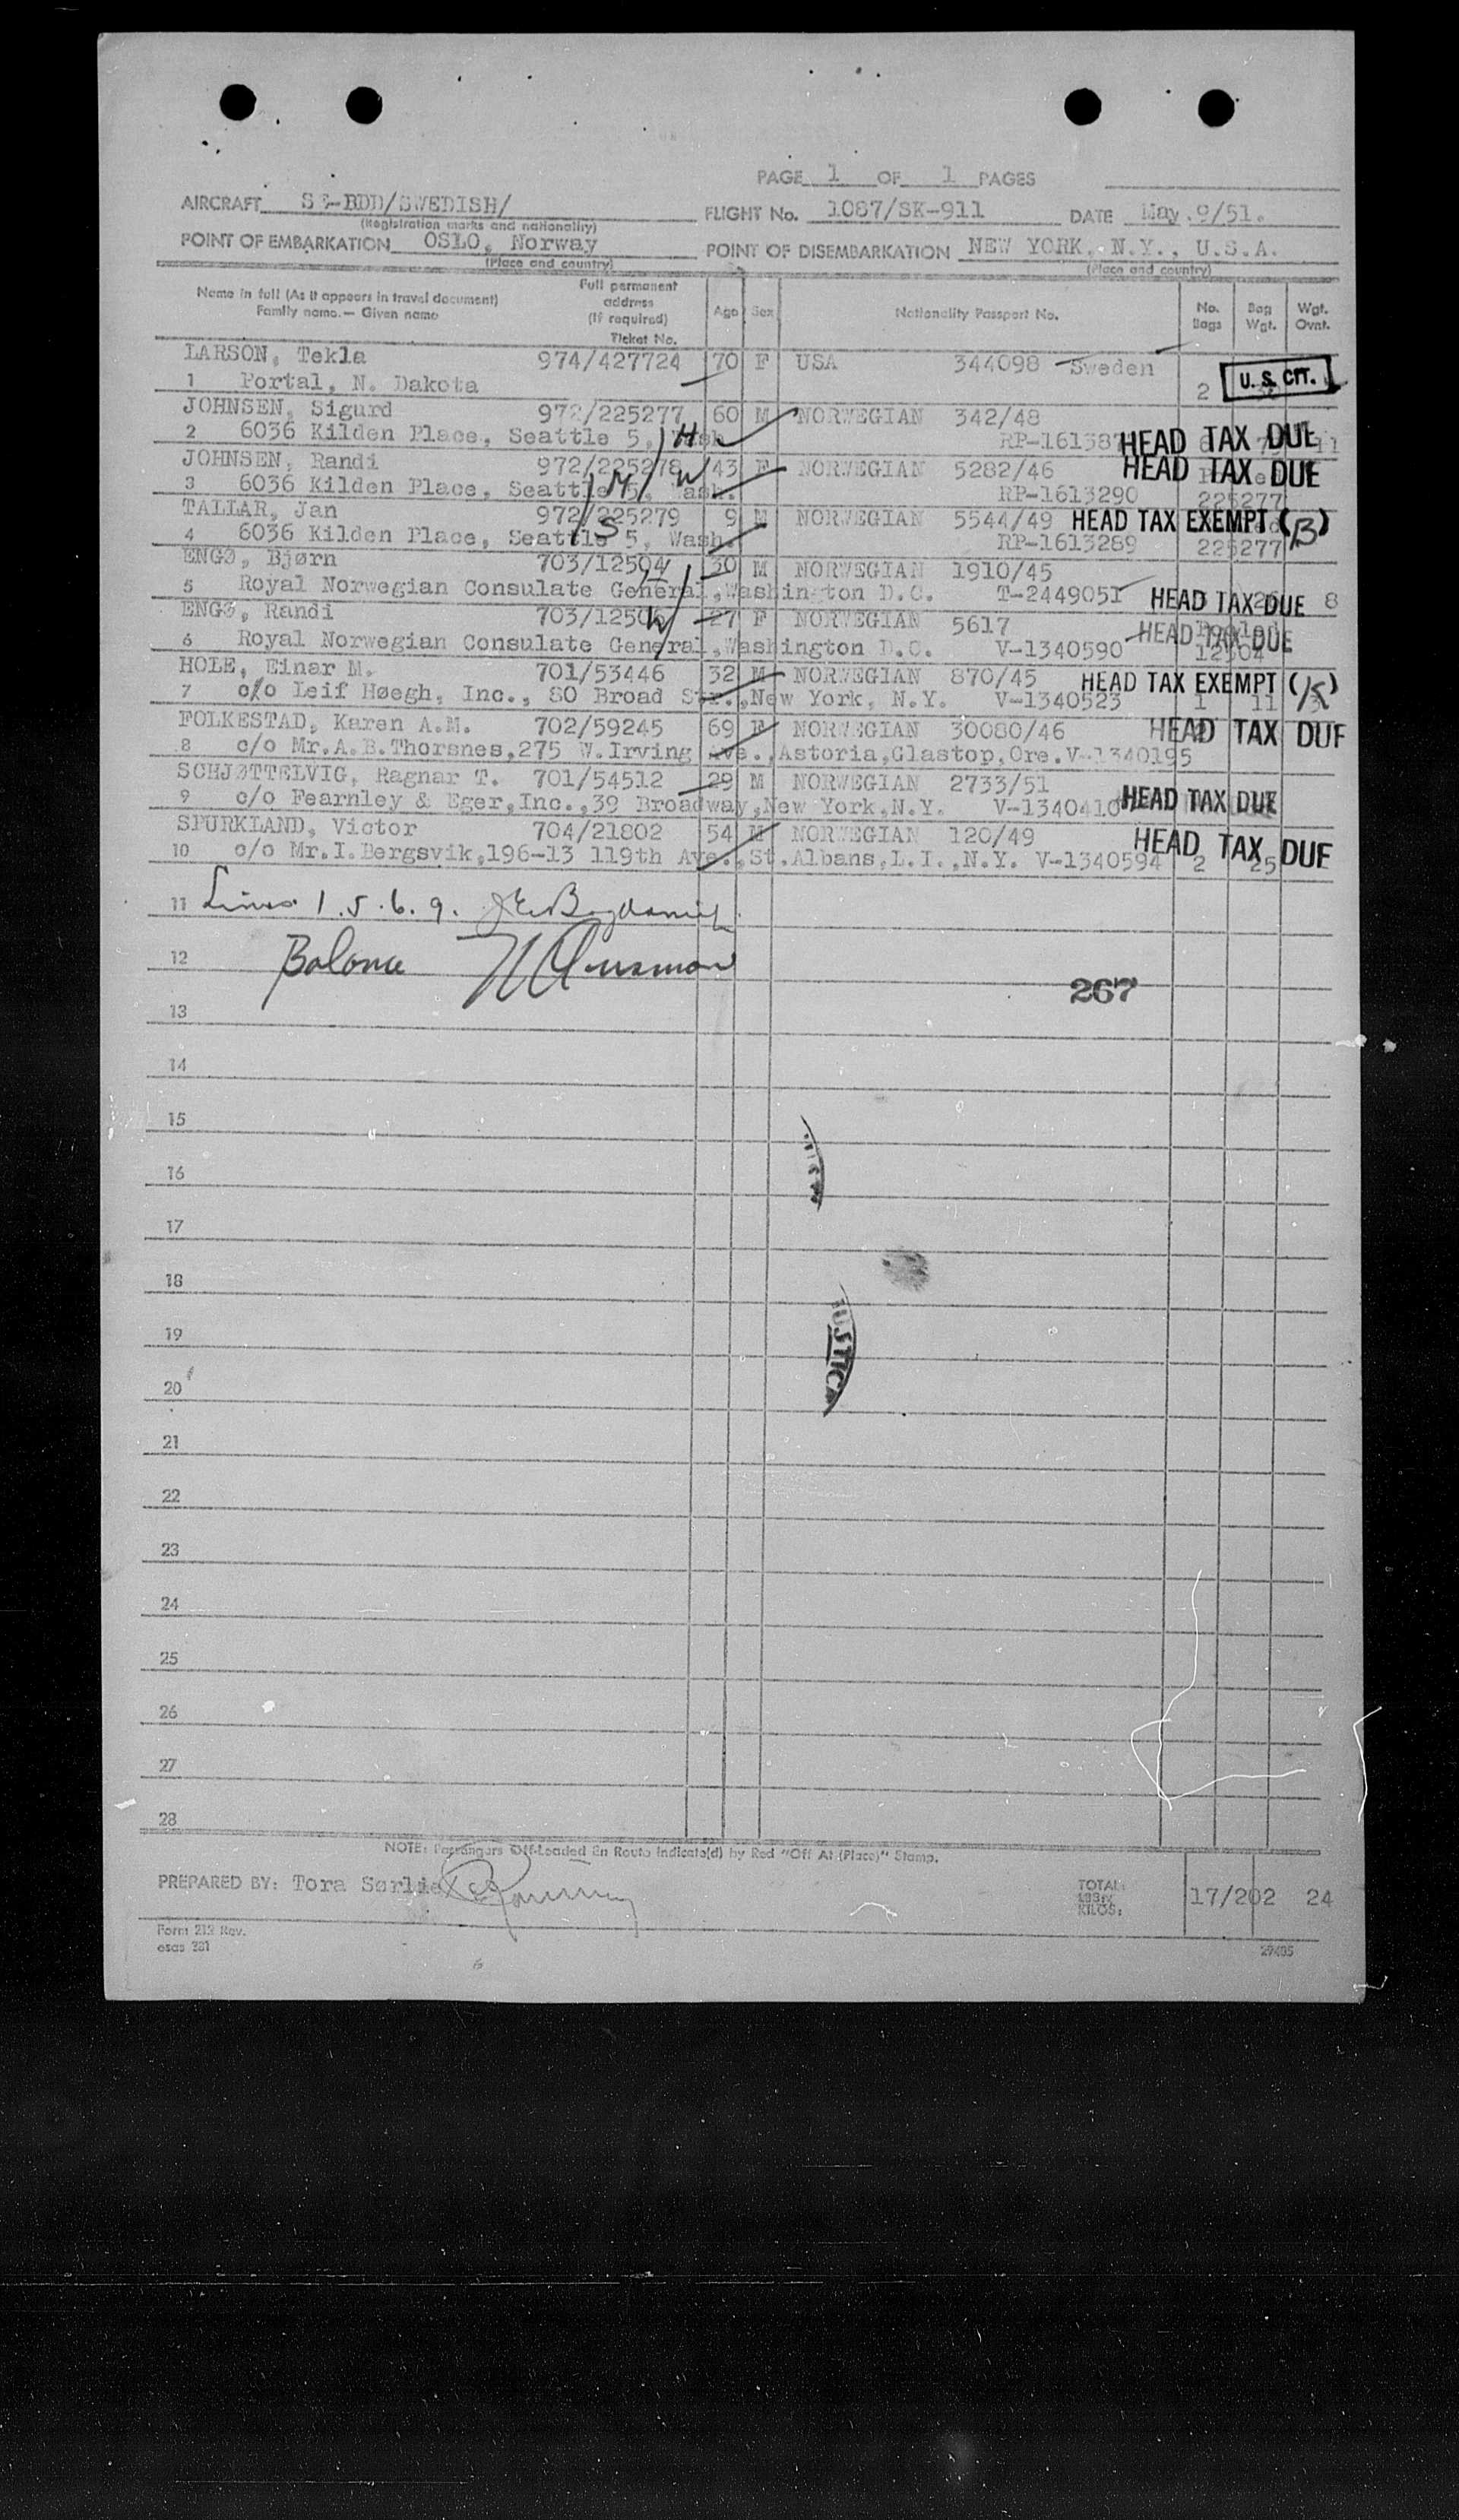 PAGE 1 OF 1 PAGES
AIRCRAFT SE-BDD/SWEDISH/ FLIGHT No. 1087/SK-911 DATE May.9/51.
(Registration marks and nationality)
POINT OF EMBARKATION OSLO, Norway POINT OF DISEMBARKATION NEW YORK, N.Y., U.S.A.
(Place and country) (Place and country)
Name in full (As it appears in travel document) Family name.— Given name Full permanent address (If required) Ticket No. Age Sex Nationality Passport No. No. Bags Bag Wgt. Wgt. Ovnt.
LARSON, Tekla 974/427724 70 F USA 344098 Sweden
1 Portal, N. Dakota 2 U. S. CIT.
JOHNSEN, Sigurd 972/225277 60 M NORWEGIAN 342/48
2 6036 Kilden Place, Seattle 5, Wash H HEAD TAX DUE 11
JOHNSEN, Randi 972/225278 W 43 F NORWEGIAN 5282/46 HEAD TAX DUE
3 6036 Kilden Place, Seattle 5, Wash. M RP-1613290 225277
TALLAR, Jan 972/225279 9 M NORWEGIAN 5544/49 HEAD TAX EXEMPT (13)
4 6036 Kilden Place, Seattle 5, Wash. S RP-1613289 225277
ENGØ, Bjørn 703/12504 30 M NORWEGIAN 1910/45
5 Royal Norwegian Consulate General,Washington D.C. T-2449051 HEAD TAX DUE 8
ENGØ, Randi 27 F NORWEGIAN 5617
6 Royal Norwegian Consulate General,Washington D.C. V-1340590 HEAD TAX DUE 12504
HOLE, Einar M. 701/53446 32 M NORWEGIAN 870/45 HEAD TAX EXEMPT
7 c/o Leif Høegh, Inc., 80 Broad Str.,New York, N.Y. V-1340523 1 11
FOLKESTAD, Karen A.M. 702/59245 69 F NORWEGIAN 30080/46 HEAD TAX DUE
8 c/o Mr.A.B.Thorsnes,275 W.Irving Ave.,Astoria,Glastop,Ore.V-1340195
SCHJØTTELVIG, Ragnar T. 701/54512 29 M NORWEGIAN 2733/51
9 c/o Fearnley & Eger,Inc.,39 Broadway,New York,N.Y. V-1340410 HEAD TAX DUE
SPURKLAND, Victor 704/21802 54 M NORWEGIAN 120/49 HEAD TAX DUE
10 c/o Mr.I.Bergsvik,196-13 119th Ave.,St.Albans,L.I.,N.Y. V-1340594 2 25
11 Lines 1.5.6.9.
12 Balance
267
13
14
15
16
17
18
19
20
21
22
23
24
25
26
27
28
NOTE: Passengers Off-Loaded En Route Indicate(d) by Red "Off At (Place)" Stamp.
PREPARED BY: Tora Sørlie TOTAL: LBS: KILOS: 17/202 24
Form 212 Rev.
esas 281 27405